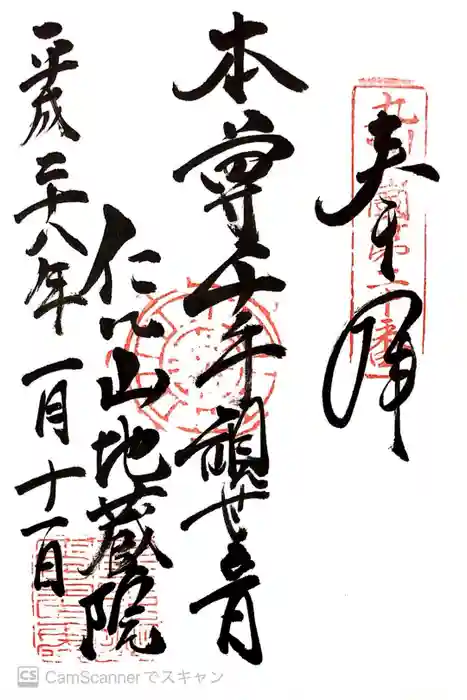 奉拝
九州西国第二十番
本尊千手観世音
仁比山地蔵院
平成二十八年一月十一日
CS CamScannerでスキャン